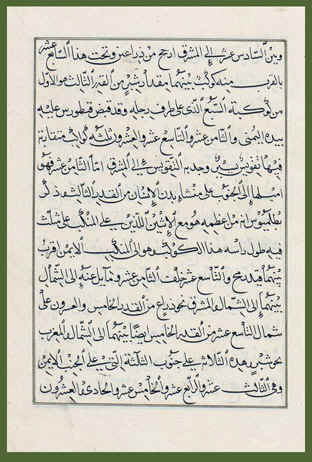 وبين السادس عشر الى المشرق ارجح من ذراعين وتحت هذا السابع عشر
بالقرب منه كوكب بينهما مقدار شبر من القدر الثالث هو الاول
من كوكبة السبع الذي على طرف رجله وقد قبض قنطورس عليه
بيده اليمنى والثامن عشر والتاسع عشر والعشرون ثلثة كواكب متقاربة
فيها تقويس يسير وحدبة التقويس الى المشرق امّا الثامن عشر فهو
اميلها الى الجنوب على منشا بدن الانسان من القدر الثالث وذكر
بطلميوس انه من اعظمه هو مع الاثنين اللذين على المنكب على مثلث
فيه طول راسه هذا الكوكب وهو الى المنكب الايمن اقرب
بينهما قدر رمح والتاسع عشر خلف الثامن عشر مايل عنه الى الشمال
بينهما الى الشمال والمشرق نحو ذراع من القدر الخامس والعشرون على
شمال التاسع عشر من القدر الخامس ايضا بينهما الى الشمال والمغرب
نحو شبر وهذه الثلاثة على جنوب الثلثة التي على الجنب الايمن
وهي الثالث عشر والرابع عشر والخامس عشر والحادي والعشرون